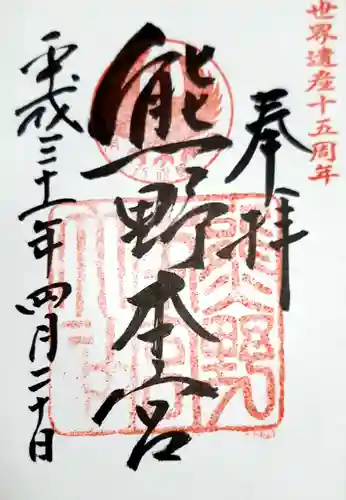 世界遺産十五周年
奉拝
熊野本宮
平成三十一年四月二十日